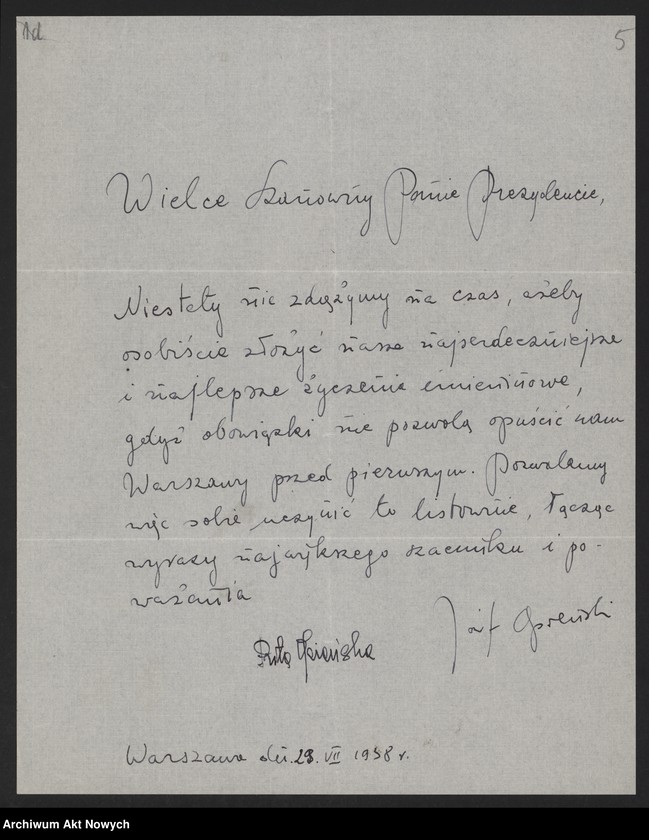 1d
5
Wielce Szanowny Panie Prezydencie,
Niestety nie zdążymy na czas, ażeby
osobiście złożyć nasze najserdeczniejsze
i najlepsze życzenia imieninowe,
gdyż obowiązki nie pozwolą opuścić nam
Warszawy przed pierwszym. Pozwalamy
więc sobie uczynić to listownie, łącząc
wyrazy największego szacunku i po-
ważania
Józef Opieński
Opieńska
Warszawa dn. 28. VII 1938 r.
Archiwum Akt Nowych